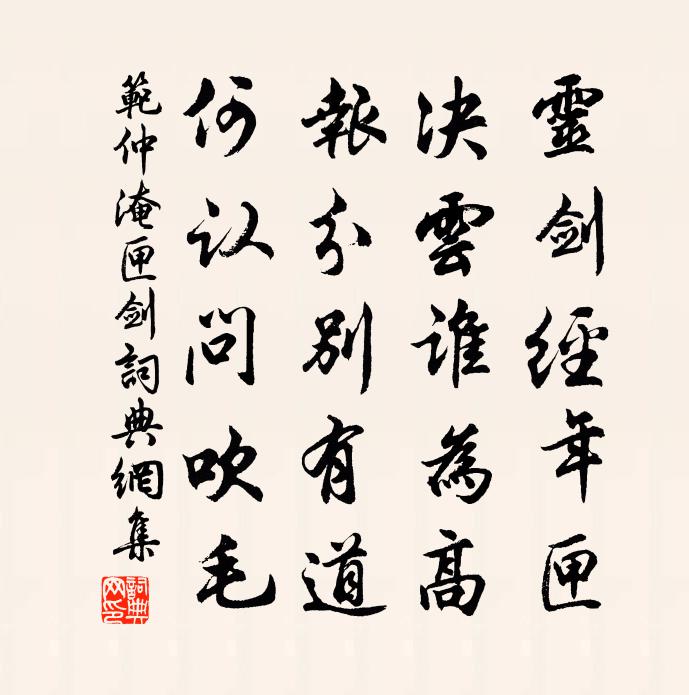 靈劍經年匣
決雲誰為高
報分別有道
何认問吹毛
範仲淹匣劍詞典網集
詞典网印